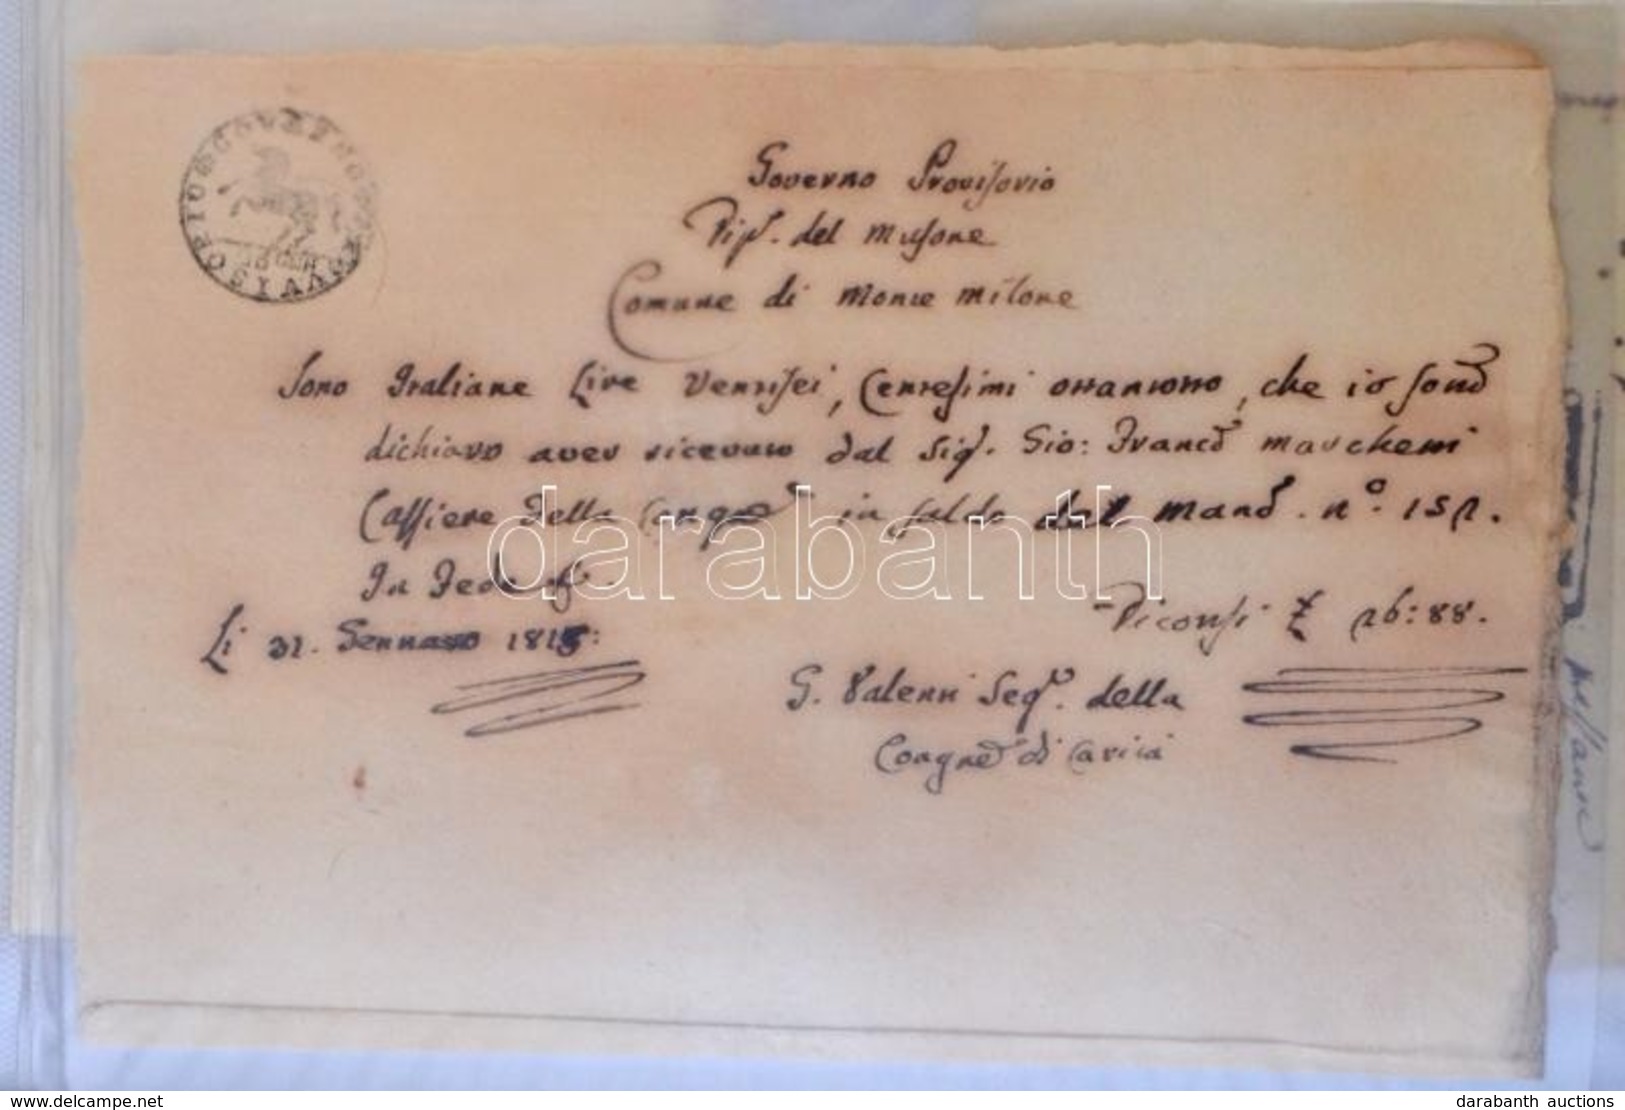 GOVERNO PROVVISORIO
Governo Provisorio
Dip.º del Musone
Comune di Monte Milone
Sono Italiane Lire Ventisei, Centesimi ottantotto, che io sottoᵈ
dichiaro aver ricevuto dal Sigʳ. Gio: Francᵒ Marchetti
Cassiere della Congneᵉ in saldo del Mandᵒ. nº. 152.
In Fede
Li 31. Gennaro 1815:
Diconsi £ 26:88.
G. Valenti Segʳº. della
Congneᵉ di Carità
darabanth
www.delcampe.net
darabanth auctions